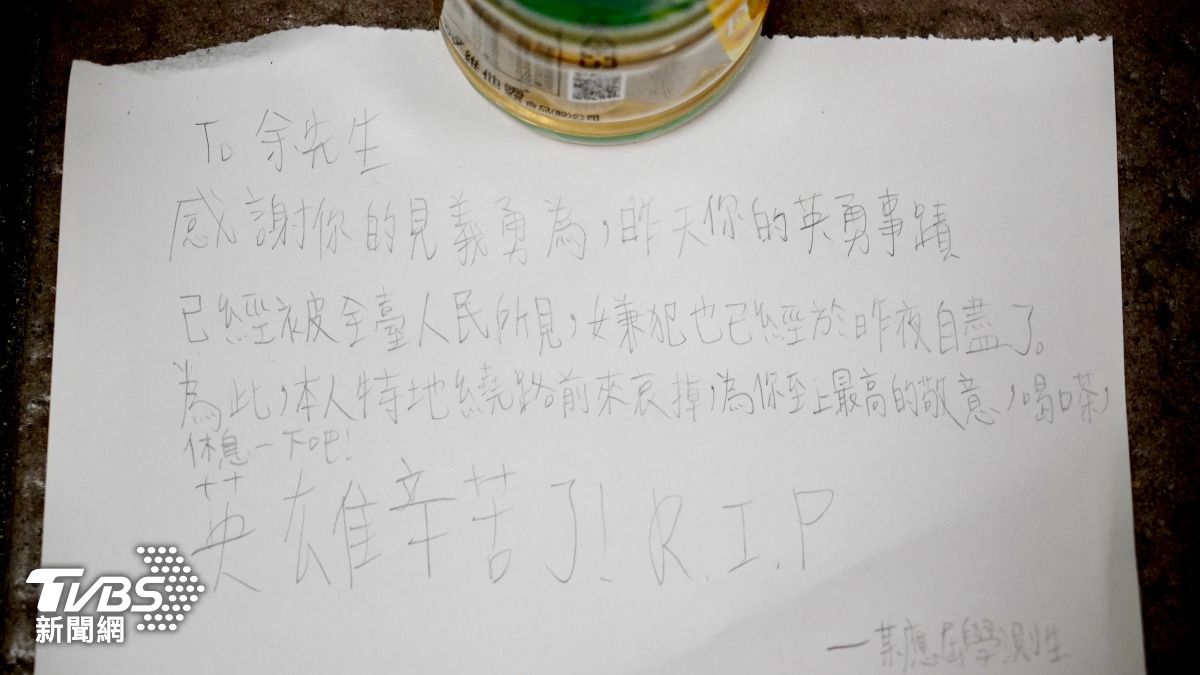 維他露
食品股份公司
To 余先生
感謝你的見義勇為，昨天你的英勇事蹟
已經被全臺人民所見，嫌犯也已經於昨夜自盡了。
為此，本人特地繞路前來哀掉，為你至上最高的敬意，喝口茶，
休息一下吧！
英雄辛苦了！R.I.P
一某應屆學測生
TVBS
新聞網